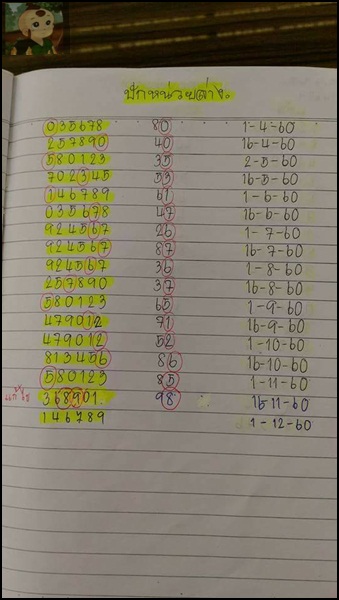 ปักหน่วยล่าง
035678 80 1-4-60
257890 40 16-4-60
580123 35 2-5-60
702345 53 16-5-60
146789 61 1-6-60
035678 47 16-6-60
924567 26 1-7-60
924567 87 16-7-60
924567 36 1-8-60
257890 37 16-8-60
580123 65 1-9-60
479012 71 16-9-60
479012 52 1-10-60
813456 86 16-10-60
580123 85 1-11-60
368901 98 16-11-60
146789 1-12-60